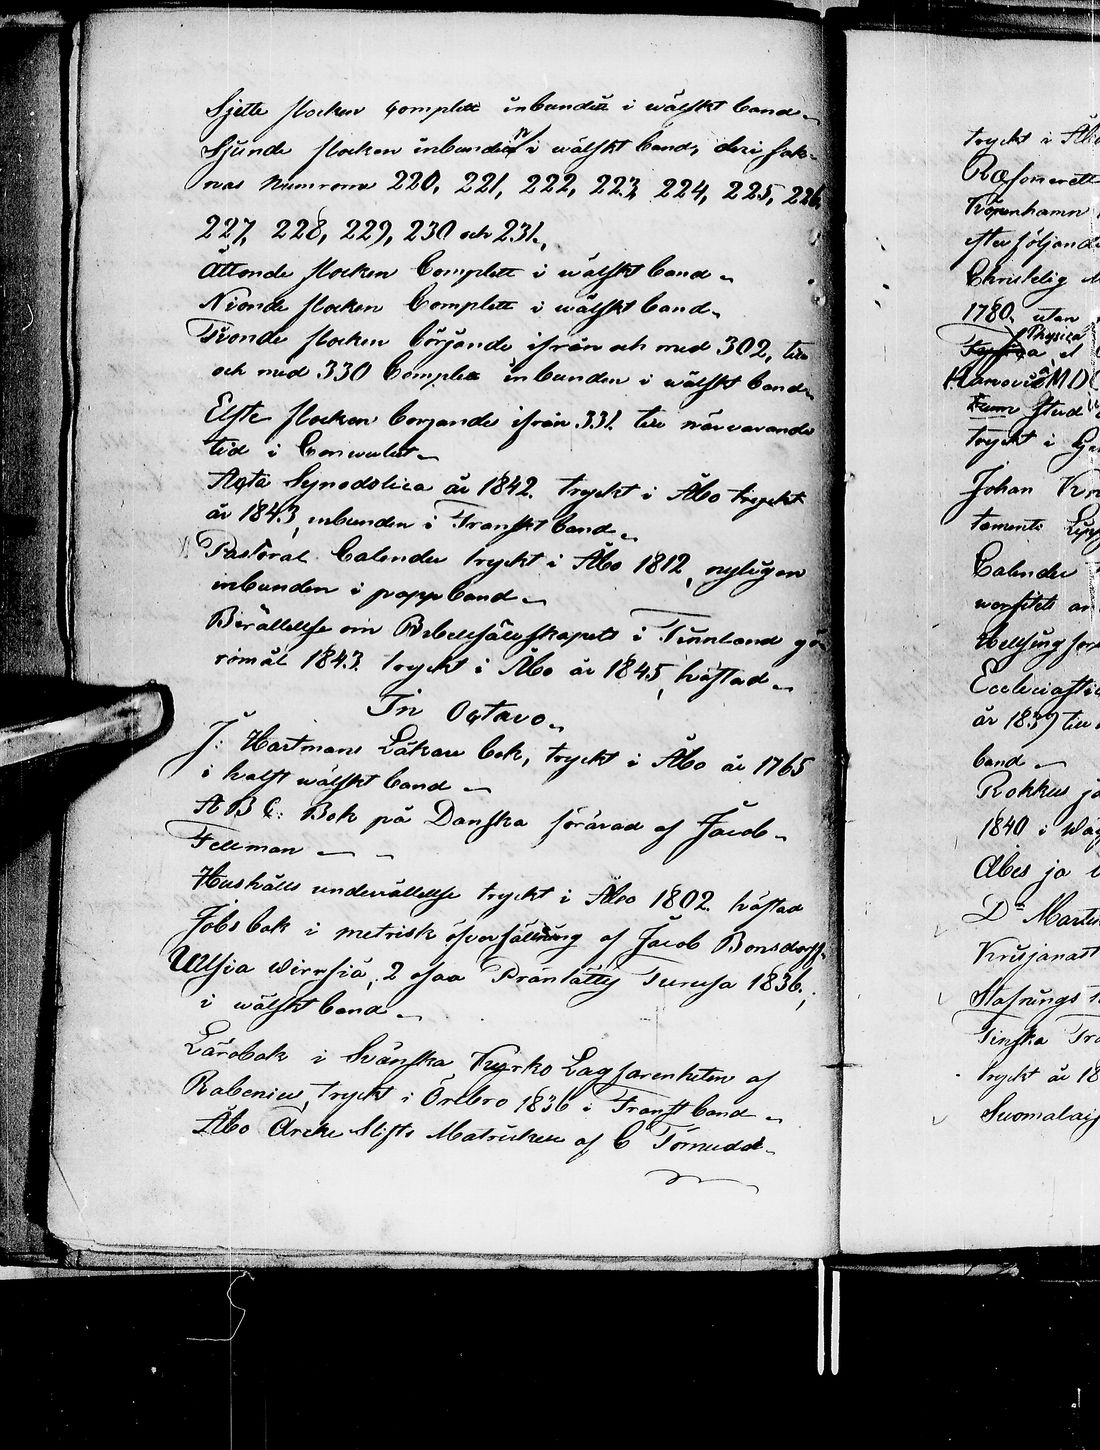 Sjette flocken Complett inbunden i wälskt band
Sjunde flocken inbunden i wälskt band, deri sak-
nas Numrorna 220, 221, 222, 223, 224, 225, 226,
227, 228, 229, 230 och 231.
Åttonde flocken Complett i wälskt band
Nionde flocken Complett i wälskt band
Tionde flocken börjande ifrån och med 302, till
och med 330 Complett inbunden i wälskt band
Elfte flocken börjande ifrån 331. till närvarande
tid i Convolut
Acta Synodalica år 1842. tryckt i Åbo tryckt
år 1843, inbunden i Franskt band
Pastoral Calender tryckt i Åbo 1812, nyligen
inbunden i papp band
Berättelse om Bibelsälskapets i Finnland gö-
romål 1843. tryckt i Åbo år 1845, häftad
In Octavo
J: Hartmans Läkare bok, tryckt i Åbo år 1765
i halft wälskt band
A B C: Bok på Danska förärad af Jacob
Fellman
Hushålls underrättelse tryckt i Åbo 1802. häftad
Jobs bok i metrisk öfversättning af Jacob Bonsdorff
Uusia Wirrsiä, 2 osaa Präntätty Turusa 1836.,
i wälskt band
Lärobok i Svänska Kyrko Lagfarenheten af
Rabenius, tryckt i Örebro 1836 i Franskt band
Åbo Ärcke Stifts Matrickel af C Törnudd
tryckt i Åbo
Köpenhamn
efter följande
Christelig
1780, utan
Physica
et
M D
Stud
tryckt i
Johan
Calender
Helsingfors
år 1837 till
band
Rokkus
1840 i
Abis ja
Dr Marten
Finska
tryckt år 18